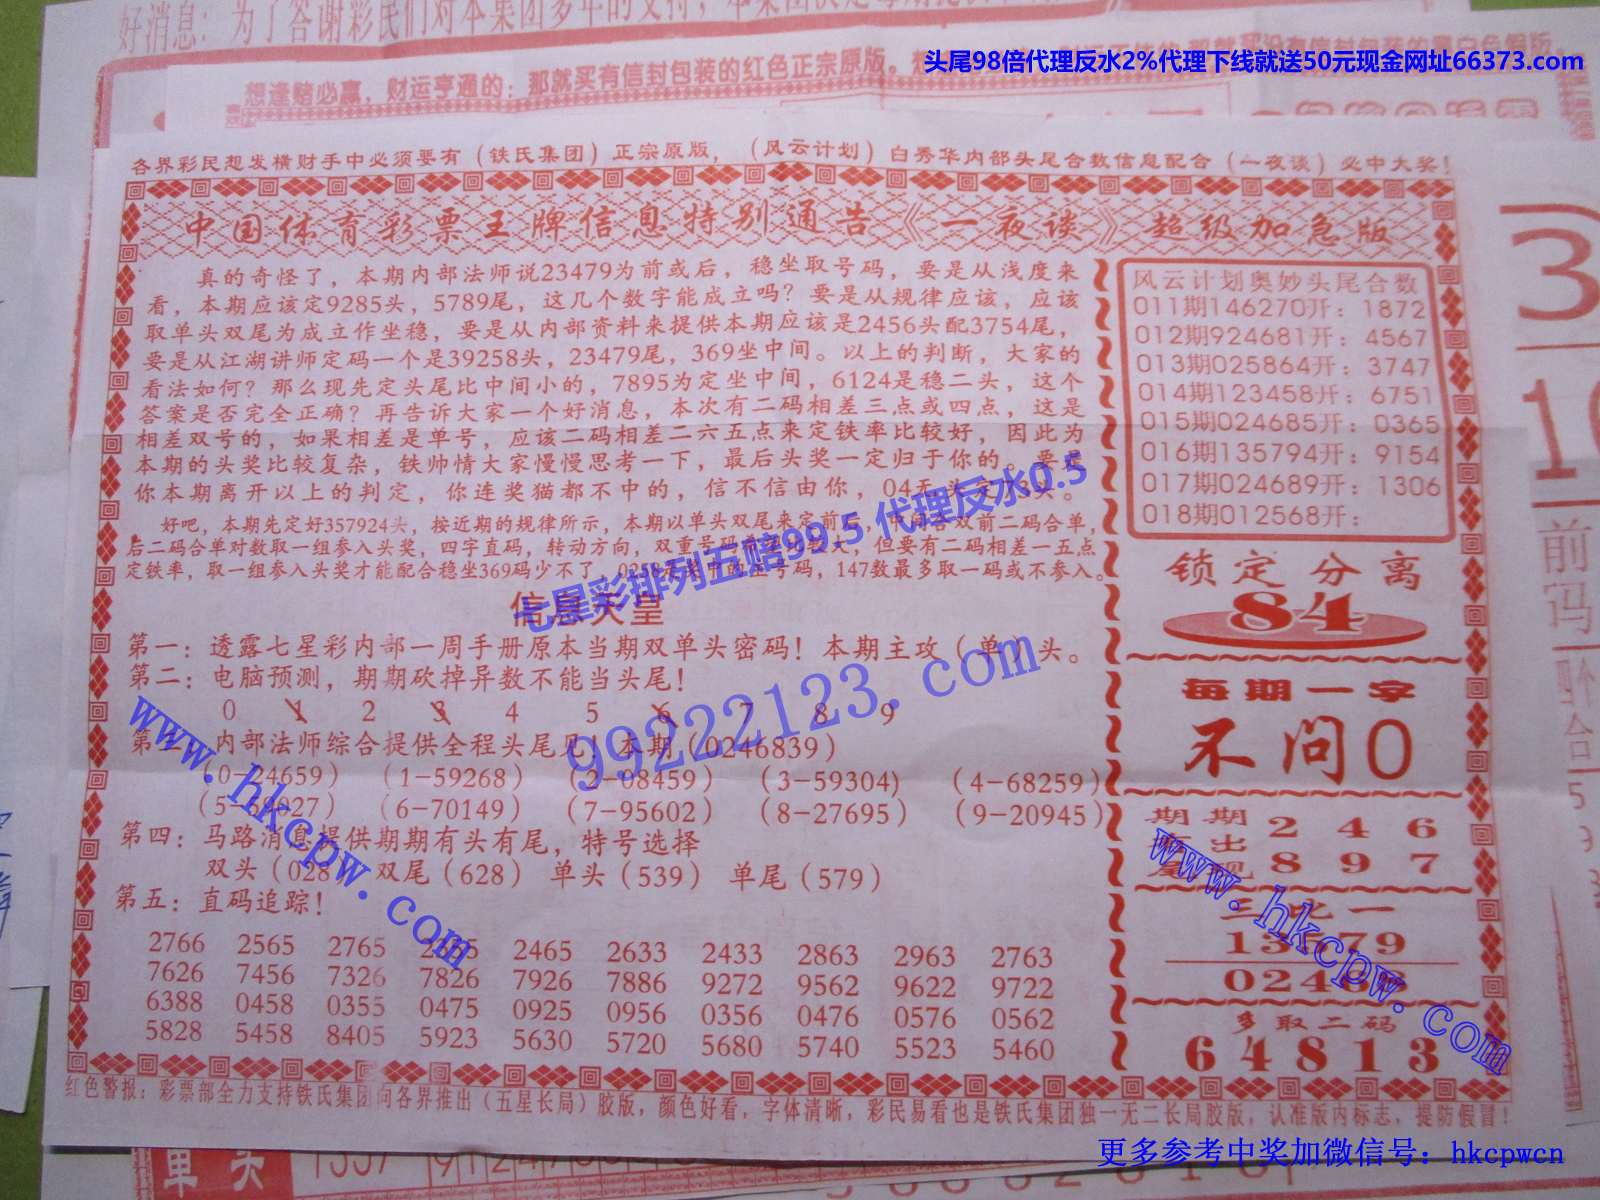 好消息：为了答谢彩民们对本集团多年的支持，本集团决定每期提供
头尾98倍代理反水2%代理下线就送50元现金网址66373.com
想逢赌必赢，财运亨通的；那就买有信封包装的红色正宗原版。
各界彩民想发横财手中必须要有（铁氏集团）正宗原版，（风云计划）白秀华内部头尾合数信息配合（一夜谈）必中大奖！
中国体育彩票王牌信息特别通告《一夜谈》超级加急版
真的奇怪了，本期内部法师说23479为前或后，稳坐取号码，要是从浅度来
看，本期应该定9285头，5789尾，这几个数字能成立吗？要是从规律应该，应该
取单头双尾为成立作坐稳，要是从内部资料来提供本期应该是2456头配3754尾，
要是从江湖讲师定码一个是39258头，23479尾，369坐中间。以上的判断，大家的
看法如何？那么现先定头尾比中间小的，7895为定坐中间，6124是稳二头，这个
答案是否完全正确？再告诉大家一个好消息，本次有二码相差三点或四点，这是
相差双号的，如果相差是单号，应该二码相差二六五点来定铁率比较好，因此为
本期的头奖比较复杂，铁帅情大家慢慢思考一下，最后头奖一定归于你的。要是
你本期离开以上的判定，你连奖猫都不中的，信不信由你，04无头定
好吧，本期先定好357924头，按近期的规律所示，本期以单头双尾来定前后，中间含双前二码合单，
后二码合单对数取一组参入头奖，四字直码，转动方向，双重号码
，但要有二码相差一五点
定铁率，取一组参入头奖才能配合稳坐369码少不了，0258
号码，147数最多取一码或不参入。
七星彩排列五赔99.5 代理反水0.5
信息天皇
第一：透露七星彩内部一周手册原本当期双单头密码！本期主攻（单）头。
第二：电脑预测，期期砍掉异数不能当头尾！
0 1 2 3 4 5 6 7 8 9
第三：内部法师综合提供全程头尾见！本期（0246839）
（0-24659）（1-59268）（2-08459）（3-59304）（4-68259）
（6-70149）（7-95602）（8-27695）（9-20945）
第四：马路消息提供期期有头有尾，特号选择
双头（028） 双尾（628） 单头（539） 单尾（579）
第五：直码追踪！
2766 2565 2765 2465 2633 2433 2863 2963 2763
7626 7456 7326 7826 7926 7886 9272 9562 9622 9722
6388 0458 0355 0475 0925 0956 0356 0476 0576 0562
5828 5458 8405 5923 5630 5720 5680 5740 5523 5460
风云计划奥妙头尾合数
011期146270开：1872
012期924681开：4567
013期025864开：3747
014期123458开：6751
015期024685开：0365
016期135794开：9154
017期024689开：1306
018期012568开：
锁定分离
84
每期一字
不问0
期期 2 4 6
出 8 9 7
三比一
13579
02468
多取二码
64813
99222123.com
www.hkcpw.com
www.hkcpw.com
红色警报：彩票部全力支持铁氏集团向各界推出（五星长局）胶版，颜色好看，字体清晰，彩民易看也是铁氏集团独一无二长局胶版，认准版内标志，提防假冒！
更多参考中奖加微信号：hkcpwcn
单头
3
前
码
合